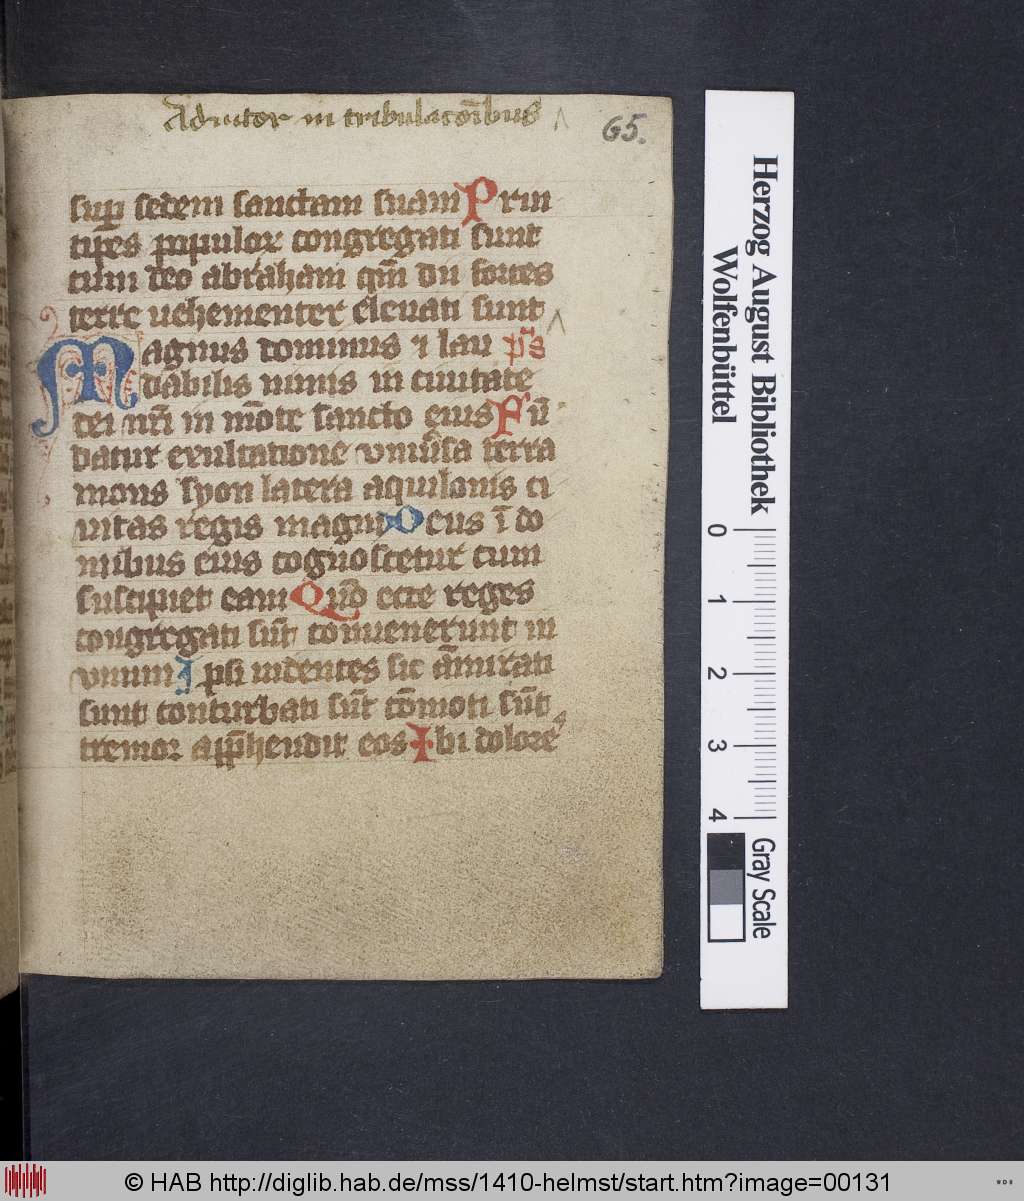 Adiutor in tribulac̄oībus
65.
sup̄ sedem sanctam suam Prin
cipes populor congregati sunt
cum deo abraham qm̄ dii fortes
terre uehementer eleuati sunt
Magnus dominus ⁊ lau p̄s
dabilis nimis in ciuitate
dei nr̄i in mōte sancto eius Fū
datur exultatione vniūsa terra
mons syon latera aquilonis ci
uitas regis magni Deus ī do
mibus eius cognoscetur cum
suscipiet eam Qm̄ ecce reges
congregati sūt conuenerunt in
vnum Ipsi uidentes sic āmirati
sunt conturbati sūt cōmoti sūt
tremor app̄hendit eos Ibi dolore
Herzog August Bibliothek
Wolfenbüttel
0 1 2 3 4
Gray Scale
© HAB http://diglib.hab.de/mss/1410-helmst/start.htm?image=00131